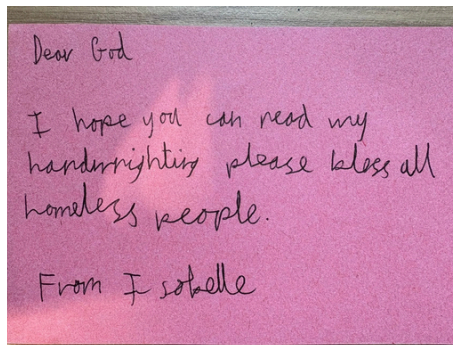 Dear God
I hope you can read my
handwrighting please bless all
homeless people.
From Isobelle